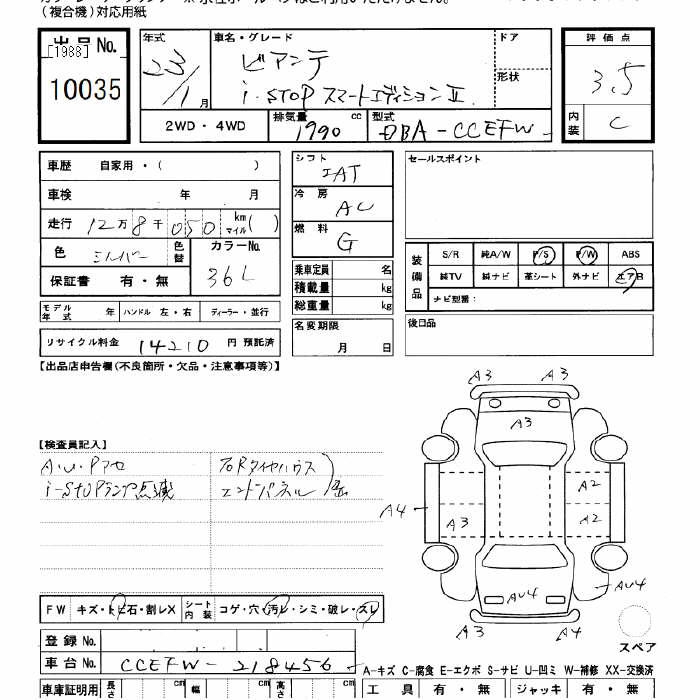 （複合機）対応用紙
出品No.
[1988]
10035
年式
23/1月
車名・グレード
ビアンテ
i-STOP スマートエディションⅡ
ドア
形状
評価点
3.5
内装
C
2WD・4WD
排気量 cc
1990
型式
DBA-CCEFW
車歴 自家用・( )
車検 年 月
走行 12万8千050 km マイル( )
色 シルバー 色替
カラーNo.
36L
保証書 有・無
モデル年式 年 ハンドル 左・右 ディーラー・並行
リサイクル料金 14210 円 預託済
シフト
IAT
冷房
AC
燃料
G
乗車定員 名
積載量 kg
総重量 kg
名変期限
月 日
セールスポイント
装備品
S/R 純A/W P/S P/W ABS
純TV 純ナビ 革シート 外ナビ エアB
ナビ型番：
後日品
【出品店申告欄(不良箇所・欠品・注意事項等)】
【検査員記入】
i-STOPランプ点滅
A3 A3
A3
A2
A4 A3 A2
AU4 AU4
A3 A4
スペア
FW キズ・トビ石・割レX
シート内装 コゲ・穴・汚レ・シミ・破レ・スレ
登録No.
車台No. CCEFW-218456
A-キズ C-腐食 E-エクボ S-サビ U-凹ミ W-補修 XX-交換済
車庫証明用 長さ cm 幅 cm 高さ cm
工具 有・無 ジャッキ 有・無